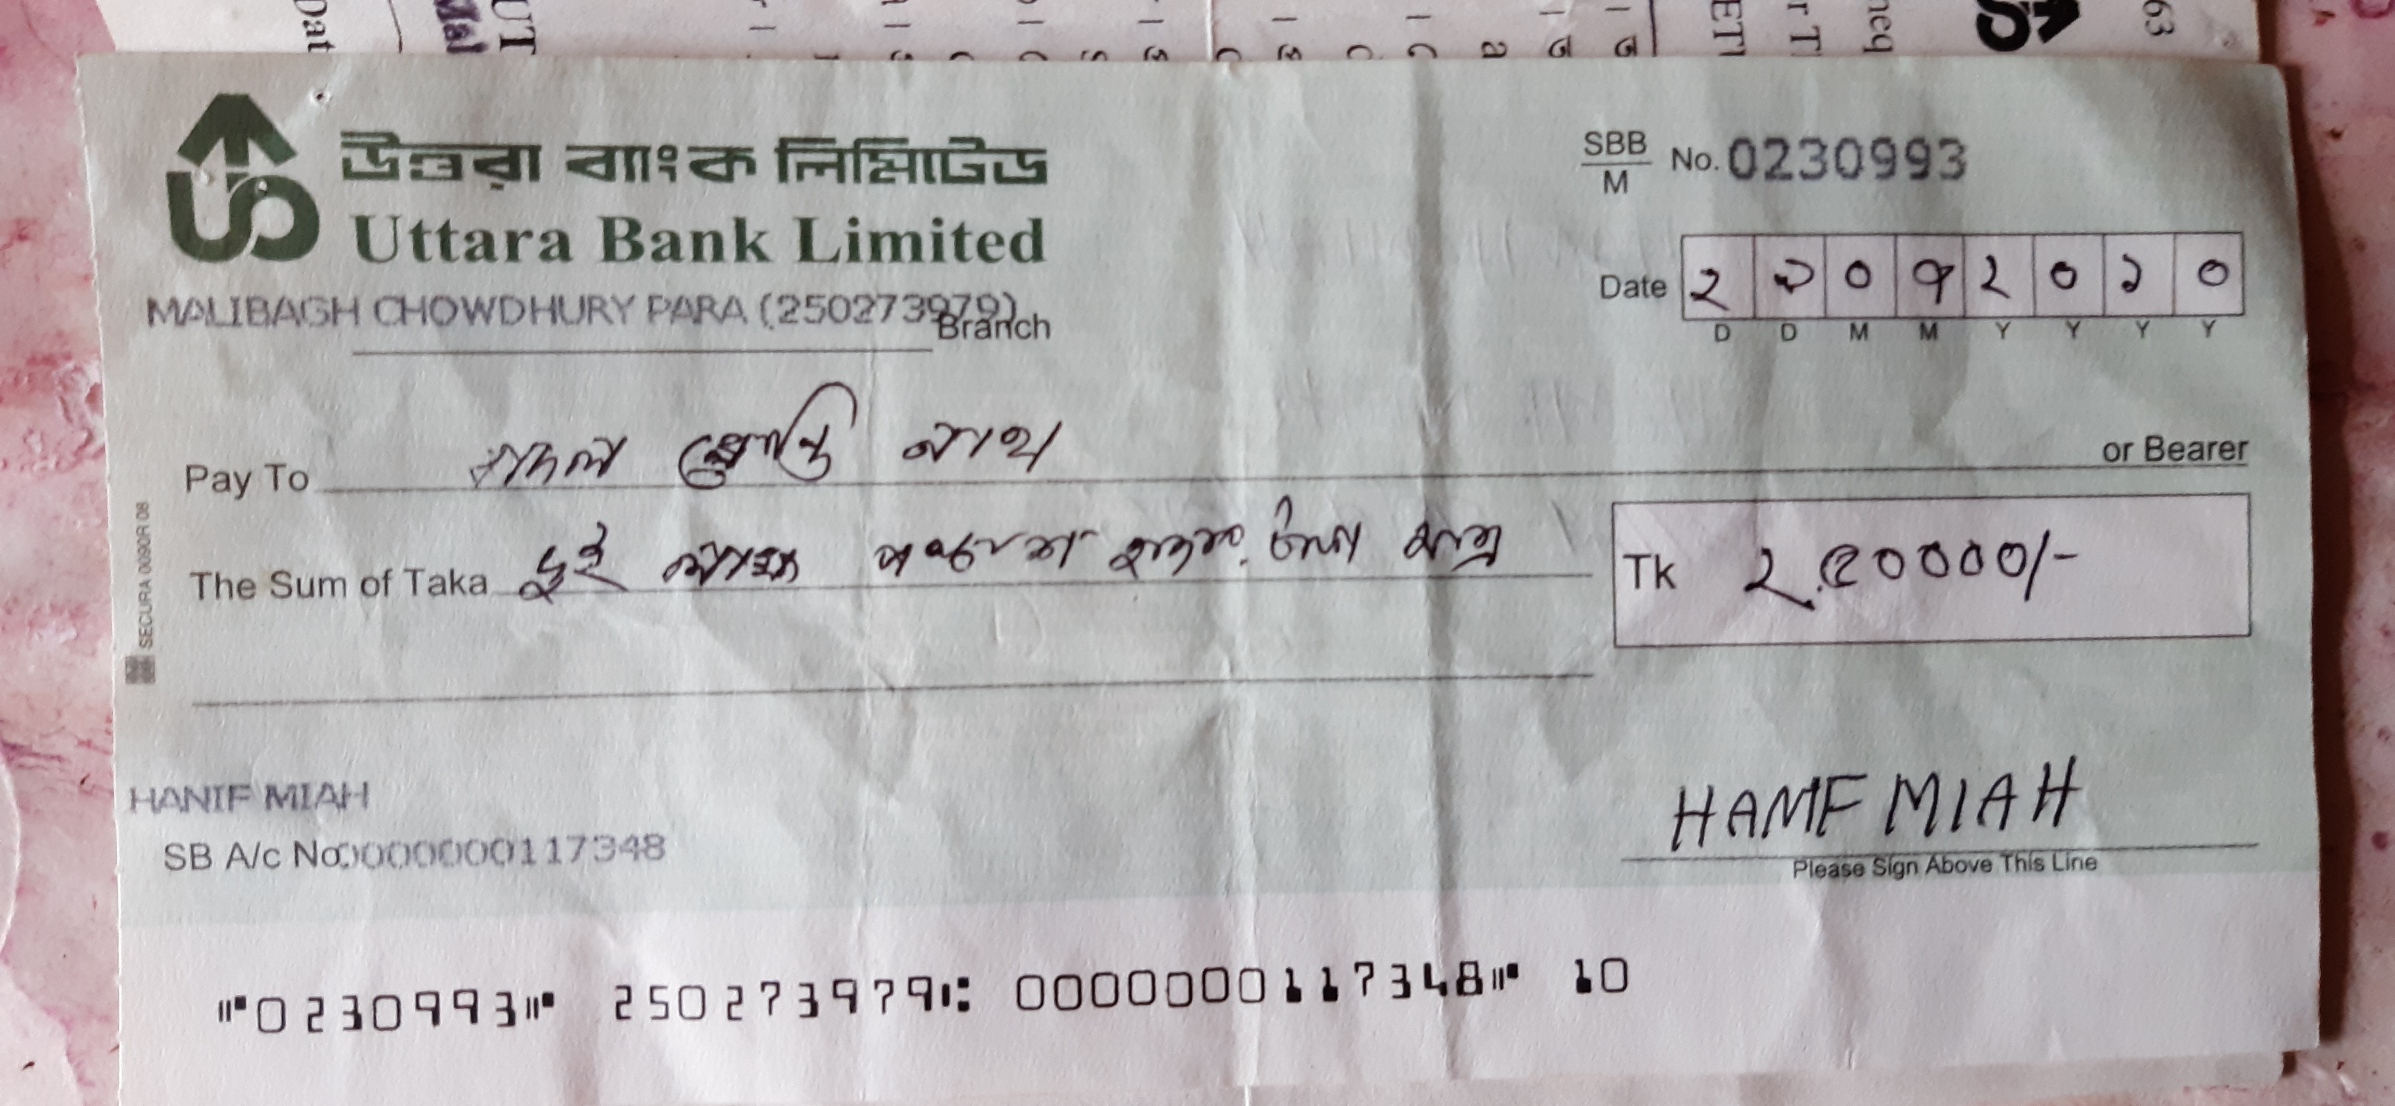 উত্তরা ব্যাংক লিমিটেড
Uttara Bank Limited
MALIBAGH CHOWDHURY PARA (250273979)
Branch
SBB
M
No. 0230993
Date 22092020
D D M M Y Y Y Y
SECURA 0090R 08
Pay To
or Bearer
The Sum of Taka দুই লক্ষ পঞ্চাশ হাজার টাকা মাত্র
Tk 2,৫0000/-
HANIF MIAH
SB A/c No0000000117348
HANIF MIAH
Please Sign Above This Line
⑈0230993⑈ 250273979⑆ 0000000117348⑈ 10